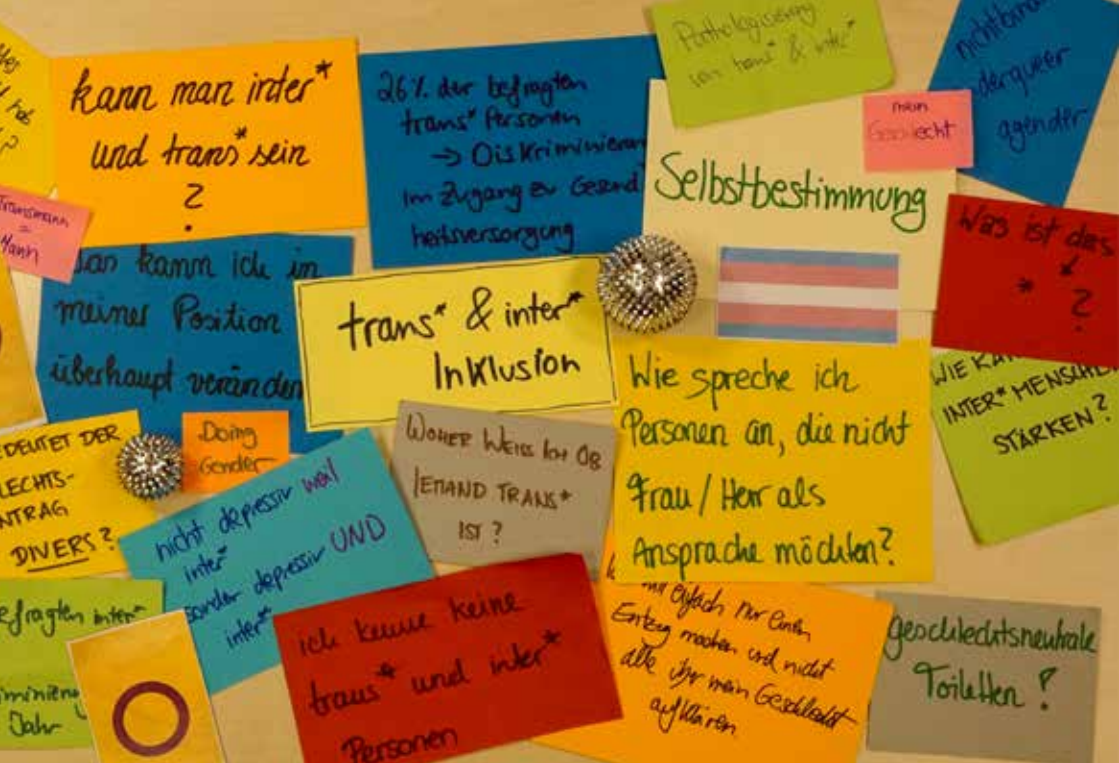 kann man inter*
und trans* sein
?
26% der befragten
trans* Personen
→ Diskriminierun
im Zugang zu Gesund
heitsversorgung
Pathologisierung
von trans* & inter*
nichtbin
derqueer
agender
mein
Geschlecht
Selbstbestimmung
Was ist das
*
?
Transmann
=
Mann
Was kann ich in
meiner Position
überhaupt veränden
trans* & inter*
Inklusion
Wie spreche ich
Personen an, die nicht
Frau / Herr als
Ansprache möchten?
WIE KA
INTER* MENSCHE
STÄRKEN?
DEUTET DER
LECHTS-
NTRAG
DIVERS?
Doing
Gender
nicht depressiv weil
inter*
sonder depressiv UND
inter*
WOHER WEISS ICH OB
JEMAND TRANS*
IST?
efragten inter*
iminieru
Jahr
ich kenne keine
trans* und inter*
Personen
einfach nur einen
Eintrag machen und nicht
alle über mein Geschlecht
aufklären
geschlechtsneutrale
Toiletten?